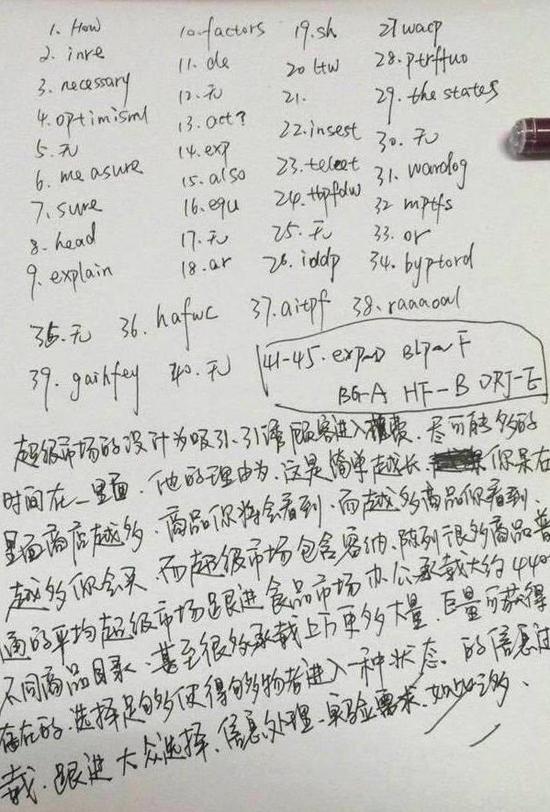 1. How 10. factors 19. sh 27 wacp
2. inre 11. de 20 ltw 28. ptrffuo
3. necessary 12. 无 21. 29. the states
4. optimisml 13. act? 22. insest 30. 无
5. 无 14. exp 23. teleet 31. wardog
6. measure 15. also 24. 32 mptfs
7. sure 16. equ 25. 无 33. or
8. head 17. 无 26. iddp 34. byptord
9. explain 18. ar
35. 无 36. hafwc 37. aitpf 38. raaaoal
39. gaihfey 40. 无 41-45. exp-D BLP-F
BG-A HF-B DRJ-E
超级市场的设计为吸引、引诱顾客进入 尽可能多的
时间在一里面. 他的理由为. 这是简单越长 你呆在
里面商店越多. 商品你将会看到. 而越多商品你看到.
越多你会买. 而超级市场包含容纳. 陈列很多商品普
通的平均超级市场跟进食品市场办公承载大约440
不同商品目录. 甚至很多承载上万更多大量. 巨量可获得
存在的. 选择足够使得购物者进入一种状态. 的信息过
载. 跟进大众选择. 信息处理. 实验需求. 如此之多.